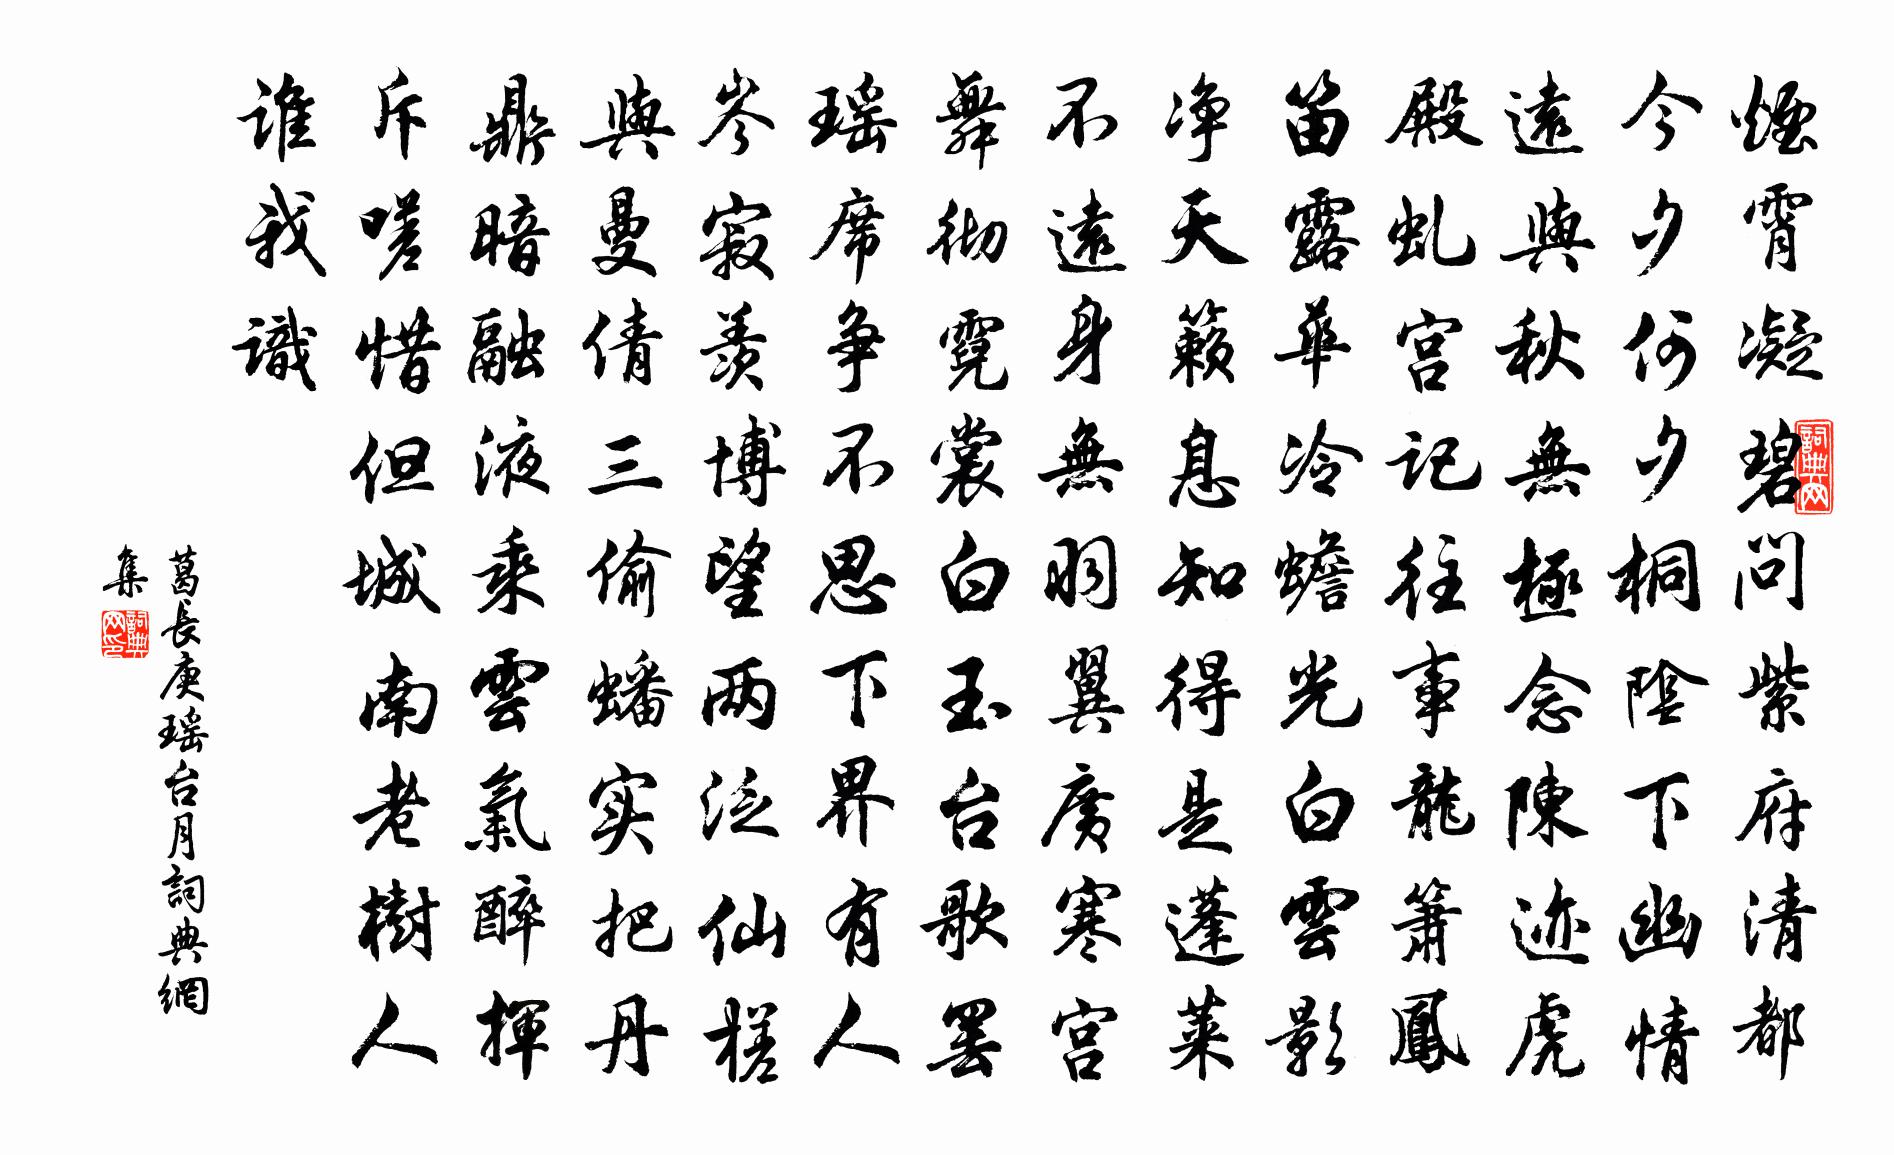 煙霄凝碧問紫府清都
今夕何夕桐陰下幽情
遠與秋無極念陳迹虎
殿虬宫記往事龍簫鳳
笛露華冷蟾光白雲影
净天籟息知得是蓬萊
不遠身無羽翼廣寒宫
舞彻霓裳白玉台歌罢
瑶席争不思下界有人
岑寂羨博望两泛仙槎
與曼倩三偷蟠实把丹
鼎暗融液乘雲氣醉揮
斥嗟惜但城南老樹人
谁我識
葛長庚瑶台月詞典網
集
詞典网
詞典网印